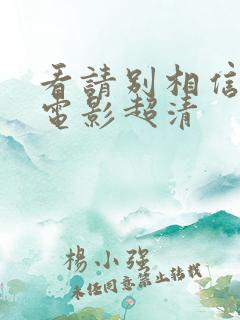 看請別相信
電影超清
楊小強
未任同意禁止转载